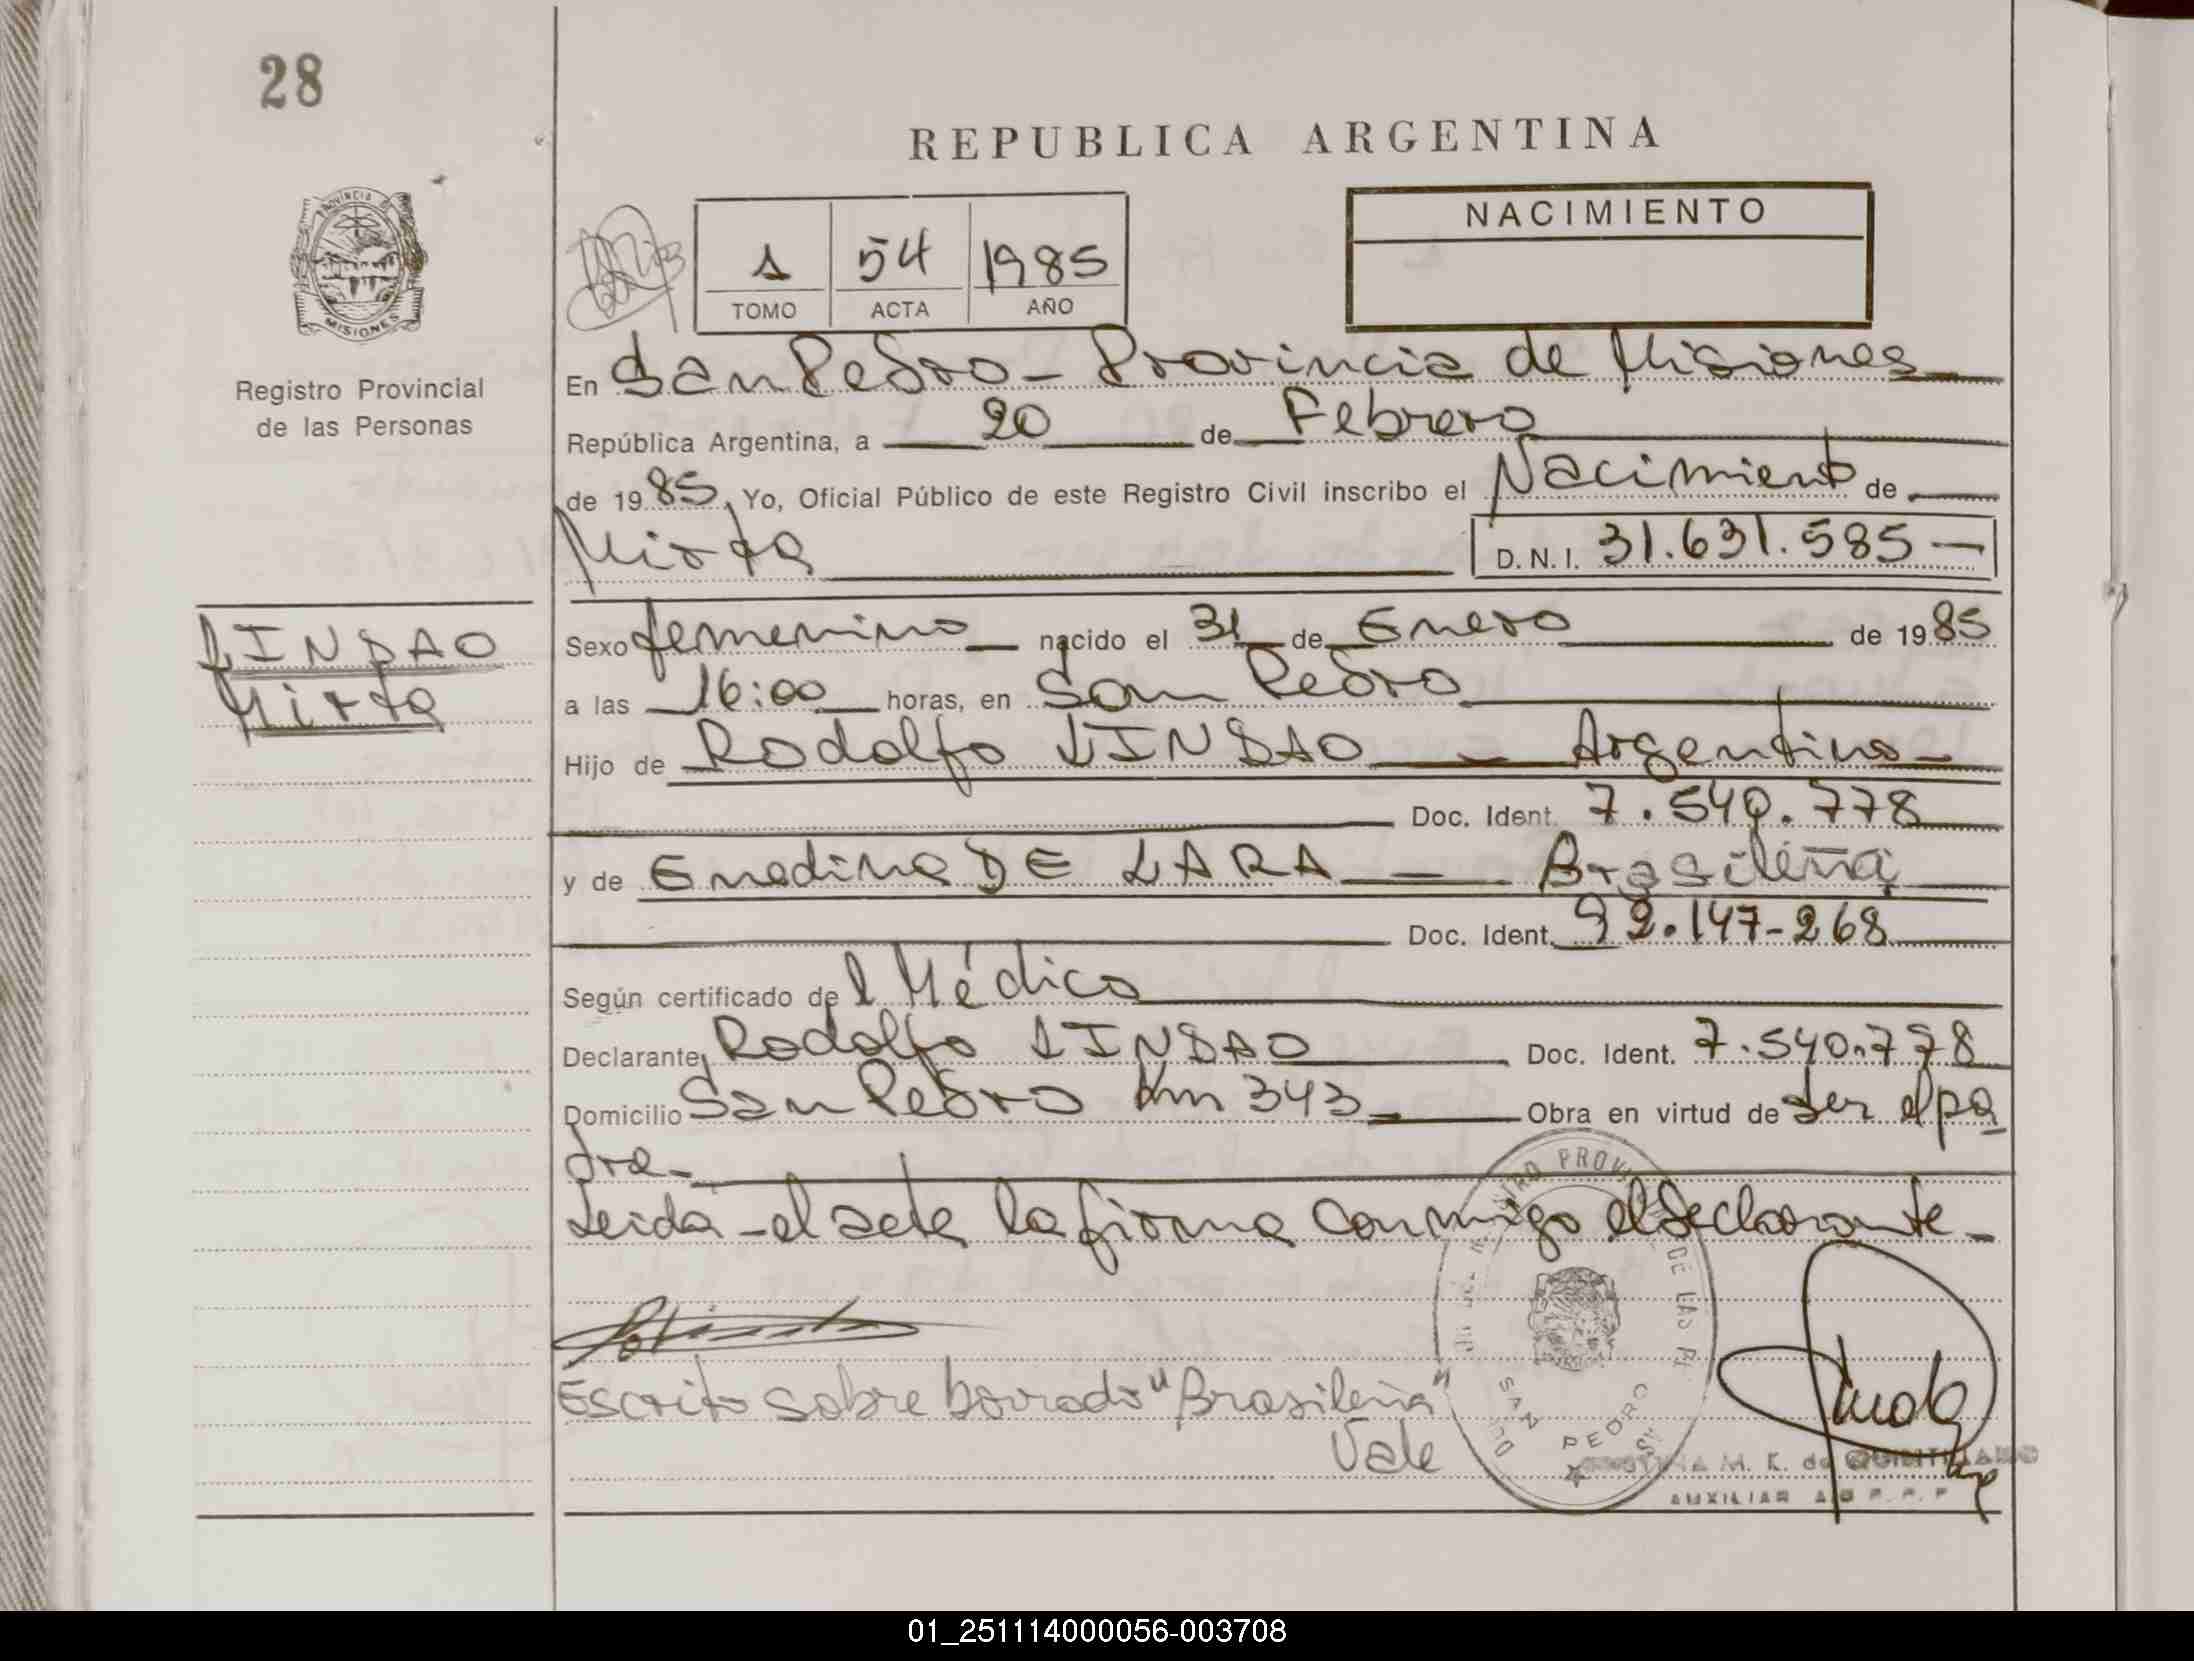 28
REPUBLICA ARGENTINA
PROVINCIA D
MISIONES
Registro Provincial
de las Personas
1 54 1985
TOMO ACTA AÑO
NACIMIENTO
En San Pedro - Provincia de Misiones
República Argentina, a 20 de Febrero
de 1985, Yo, Oficial Público de este Registro Civil inscribo el Nacimiento de
Mirta D.N.I. 31.631.585 —
LINDAO
Mirta
Sexo femenino nacido el 31 de Enero de 1985
a las 16:00 horas, en San Pedro
Hijo de Rodolfo LINDAO — Argentino -
Doc. Ident. 7.540.778
y de Enedina DE LARA — Brasileña
Doc. Ident. 92.147-268
Según certificado del Médico
Declarante Rodolfo LINDAO Doc. Ident. 7.540.778
Domicilio San Pedro Km 343 - Obra en virtud de ser el pa
dre -
Leida - el acta la firma conmigo el declarante -
Escrito sobre borrado "Brasileña"
Vale
SAN PEDRO
M. K. de QUINTILIANO
AUXILIAR
01_251114000056-003708